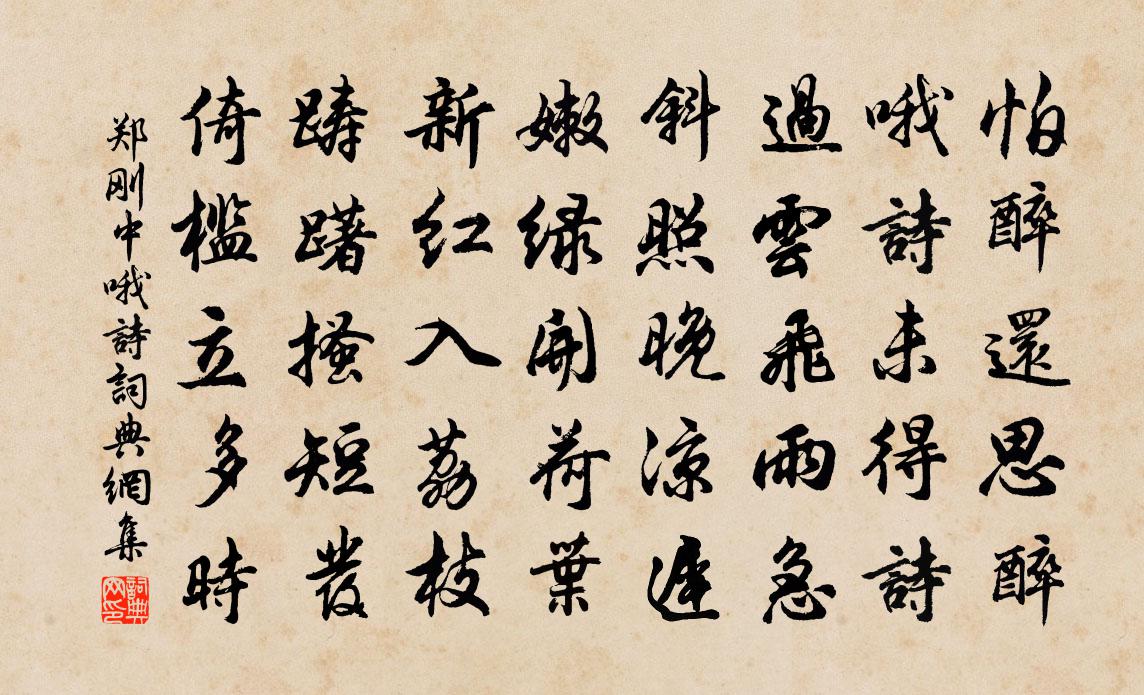 怕醉還思醉
哦詩未得詩
過雲飛雨急
斜照晚涼遲
嫩綠開荷葉
新紅入荔枝
踌躇搔短發
倚檻立多時
郑刚中哦詩詞典網集
詞典网印